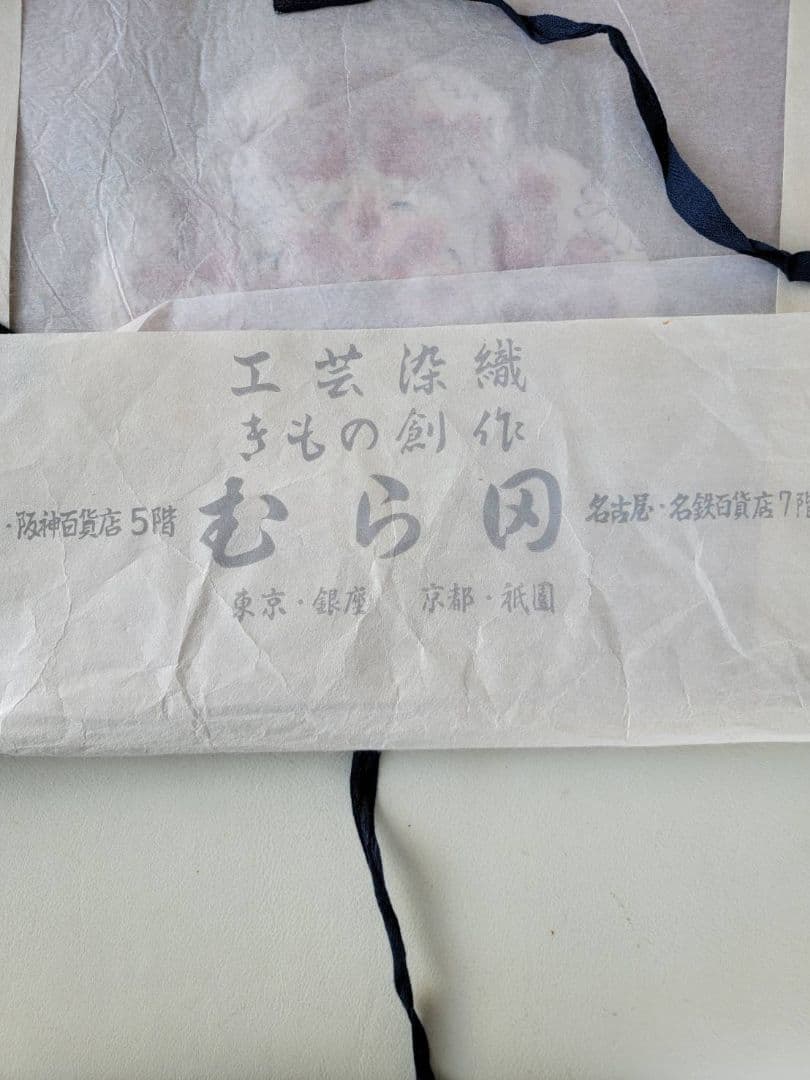 工芸染織
きもの創作
・阪神百貨店5階 むら岡 名古屋・名鉄百貨店7階
東京・銀座 京都・祇園